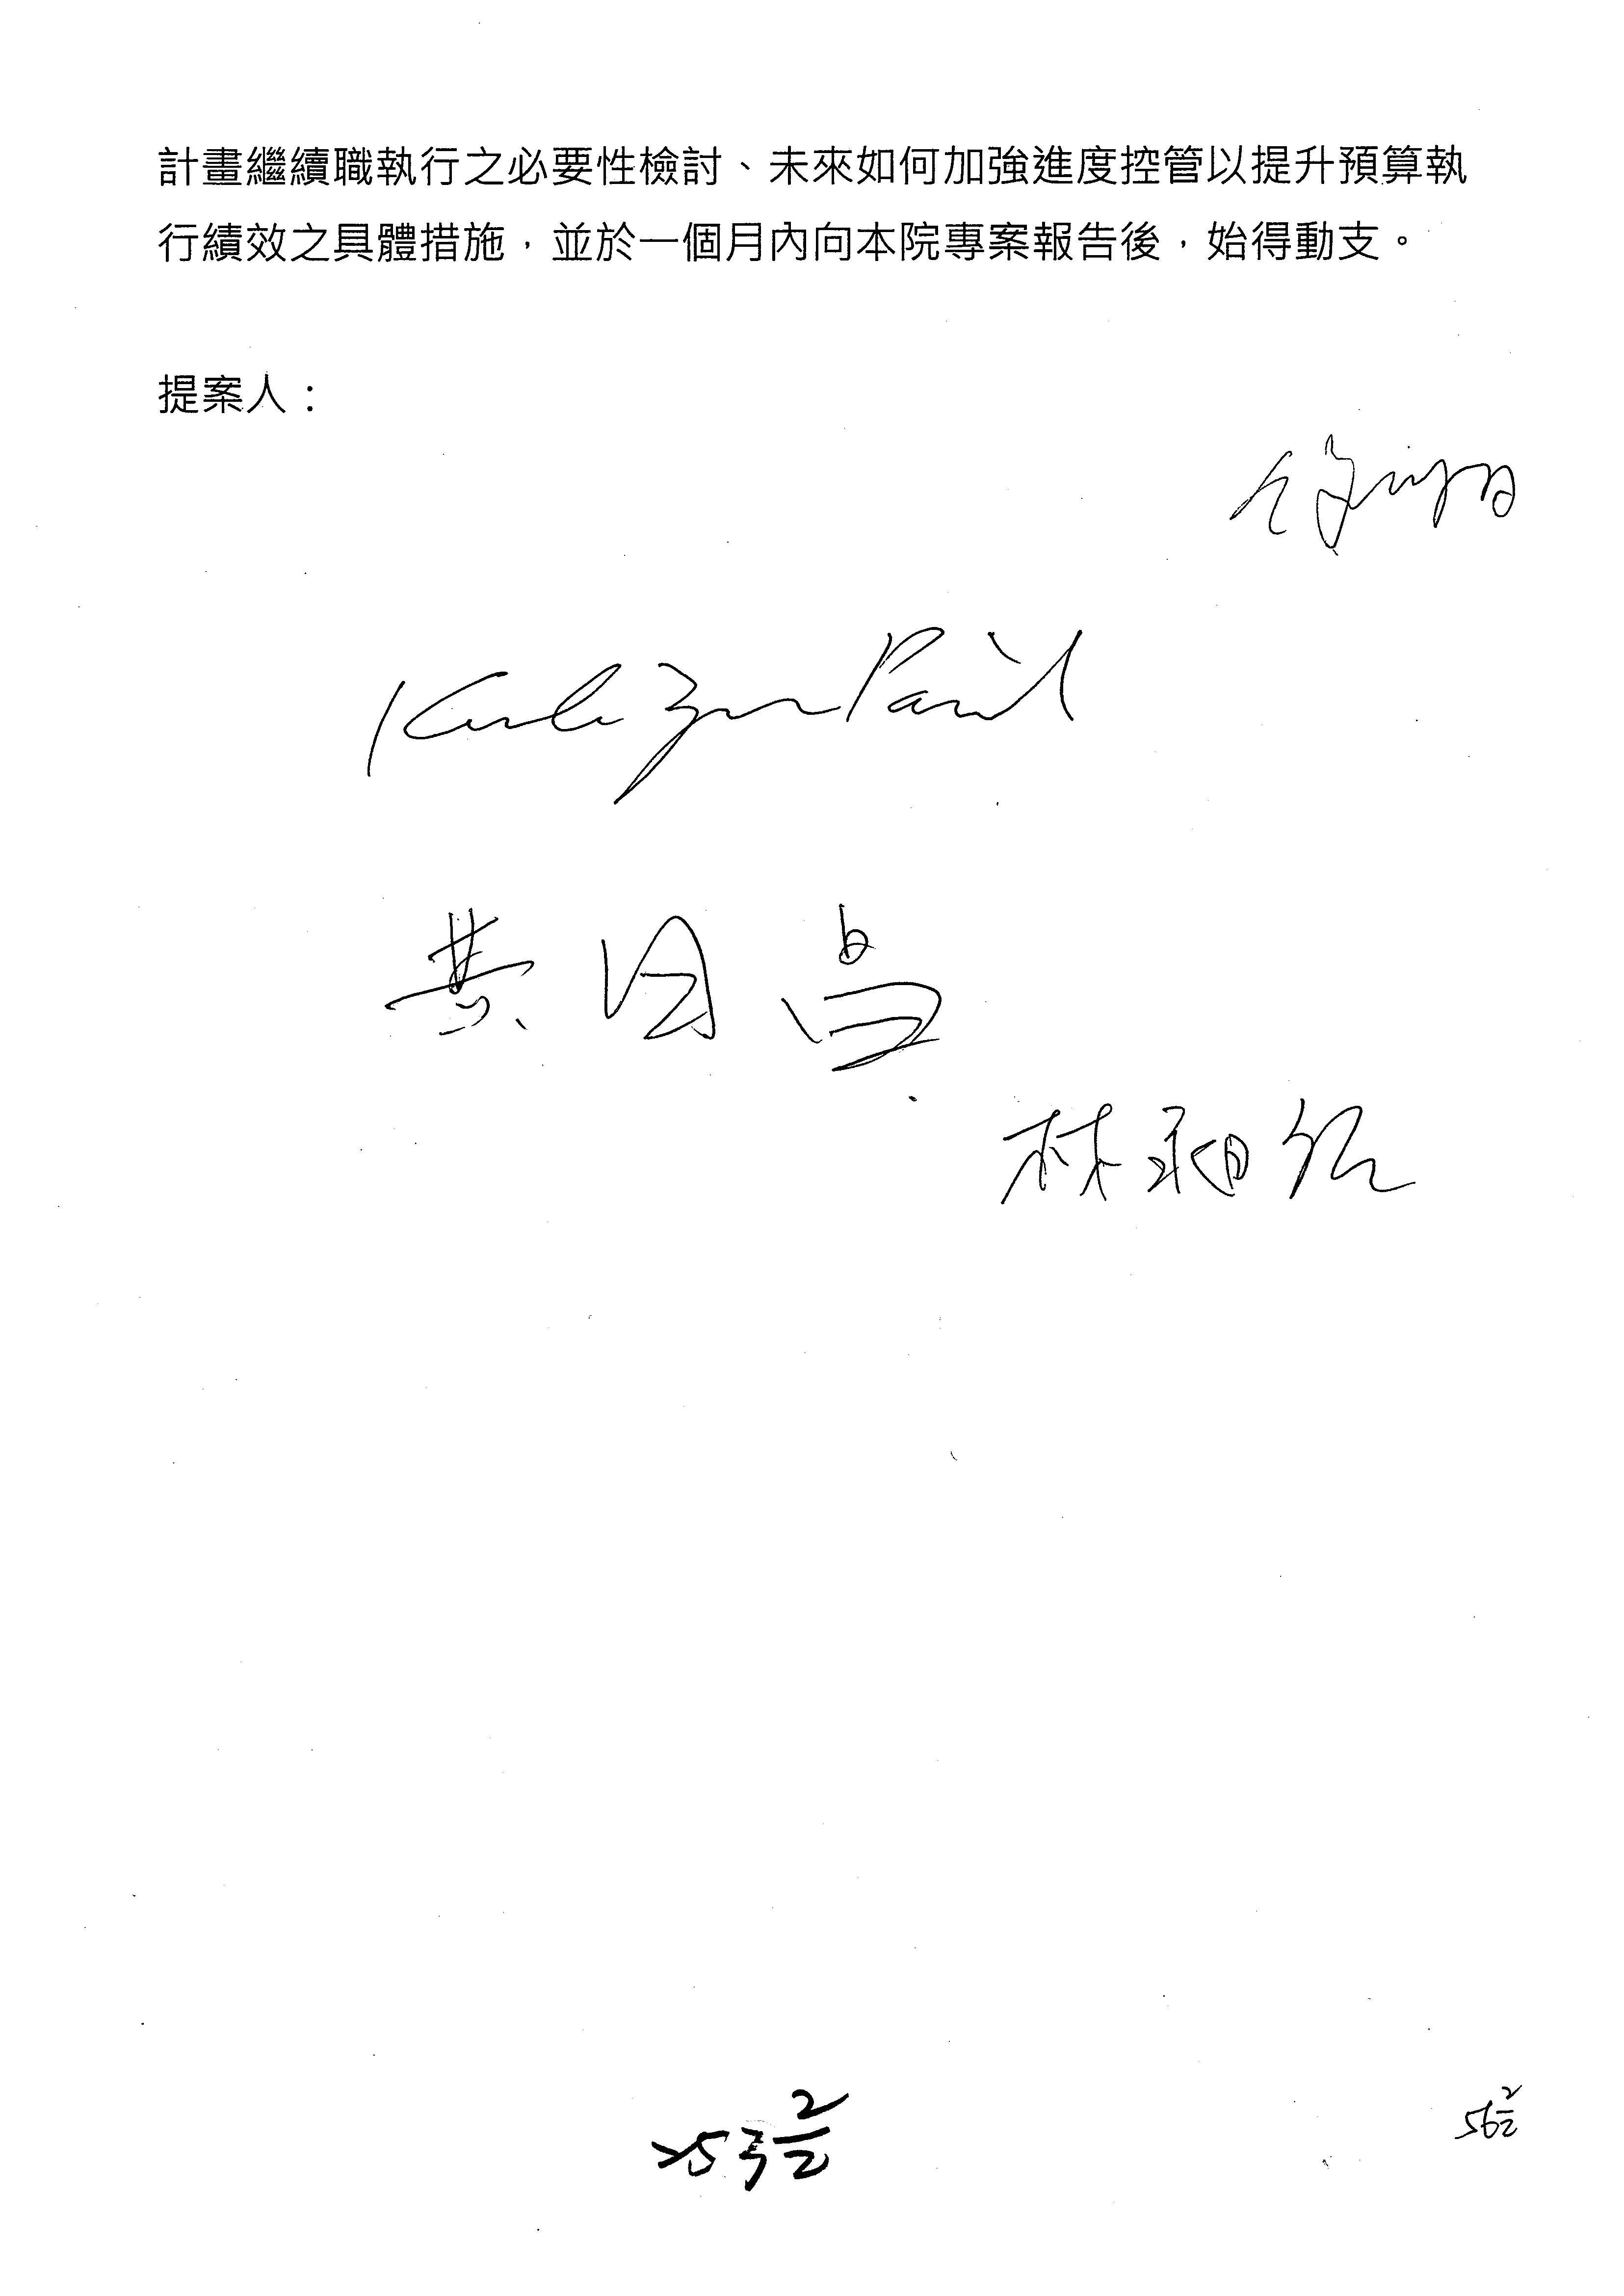 計畫繼續職執行之必要性檢討、未來如何加強進度控管以提升預算執
行績效之具體措施，並於一個月內向本院專案報告後，始得動支。
提案人：
黃國昌
林昶佐
253 2/2
56 2/2